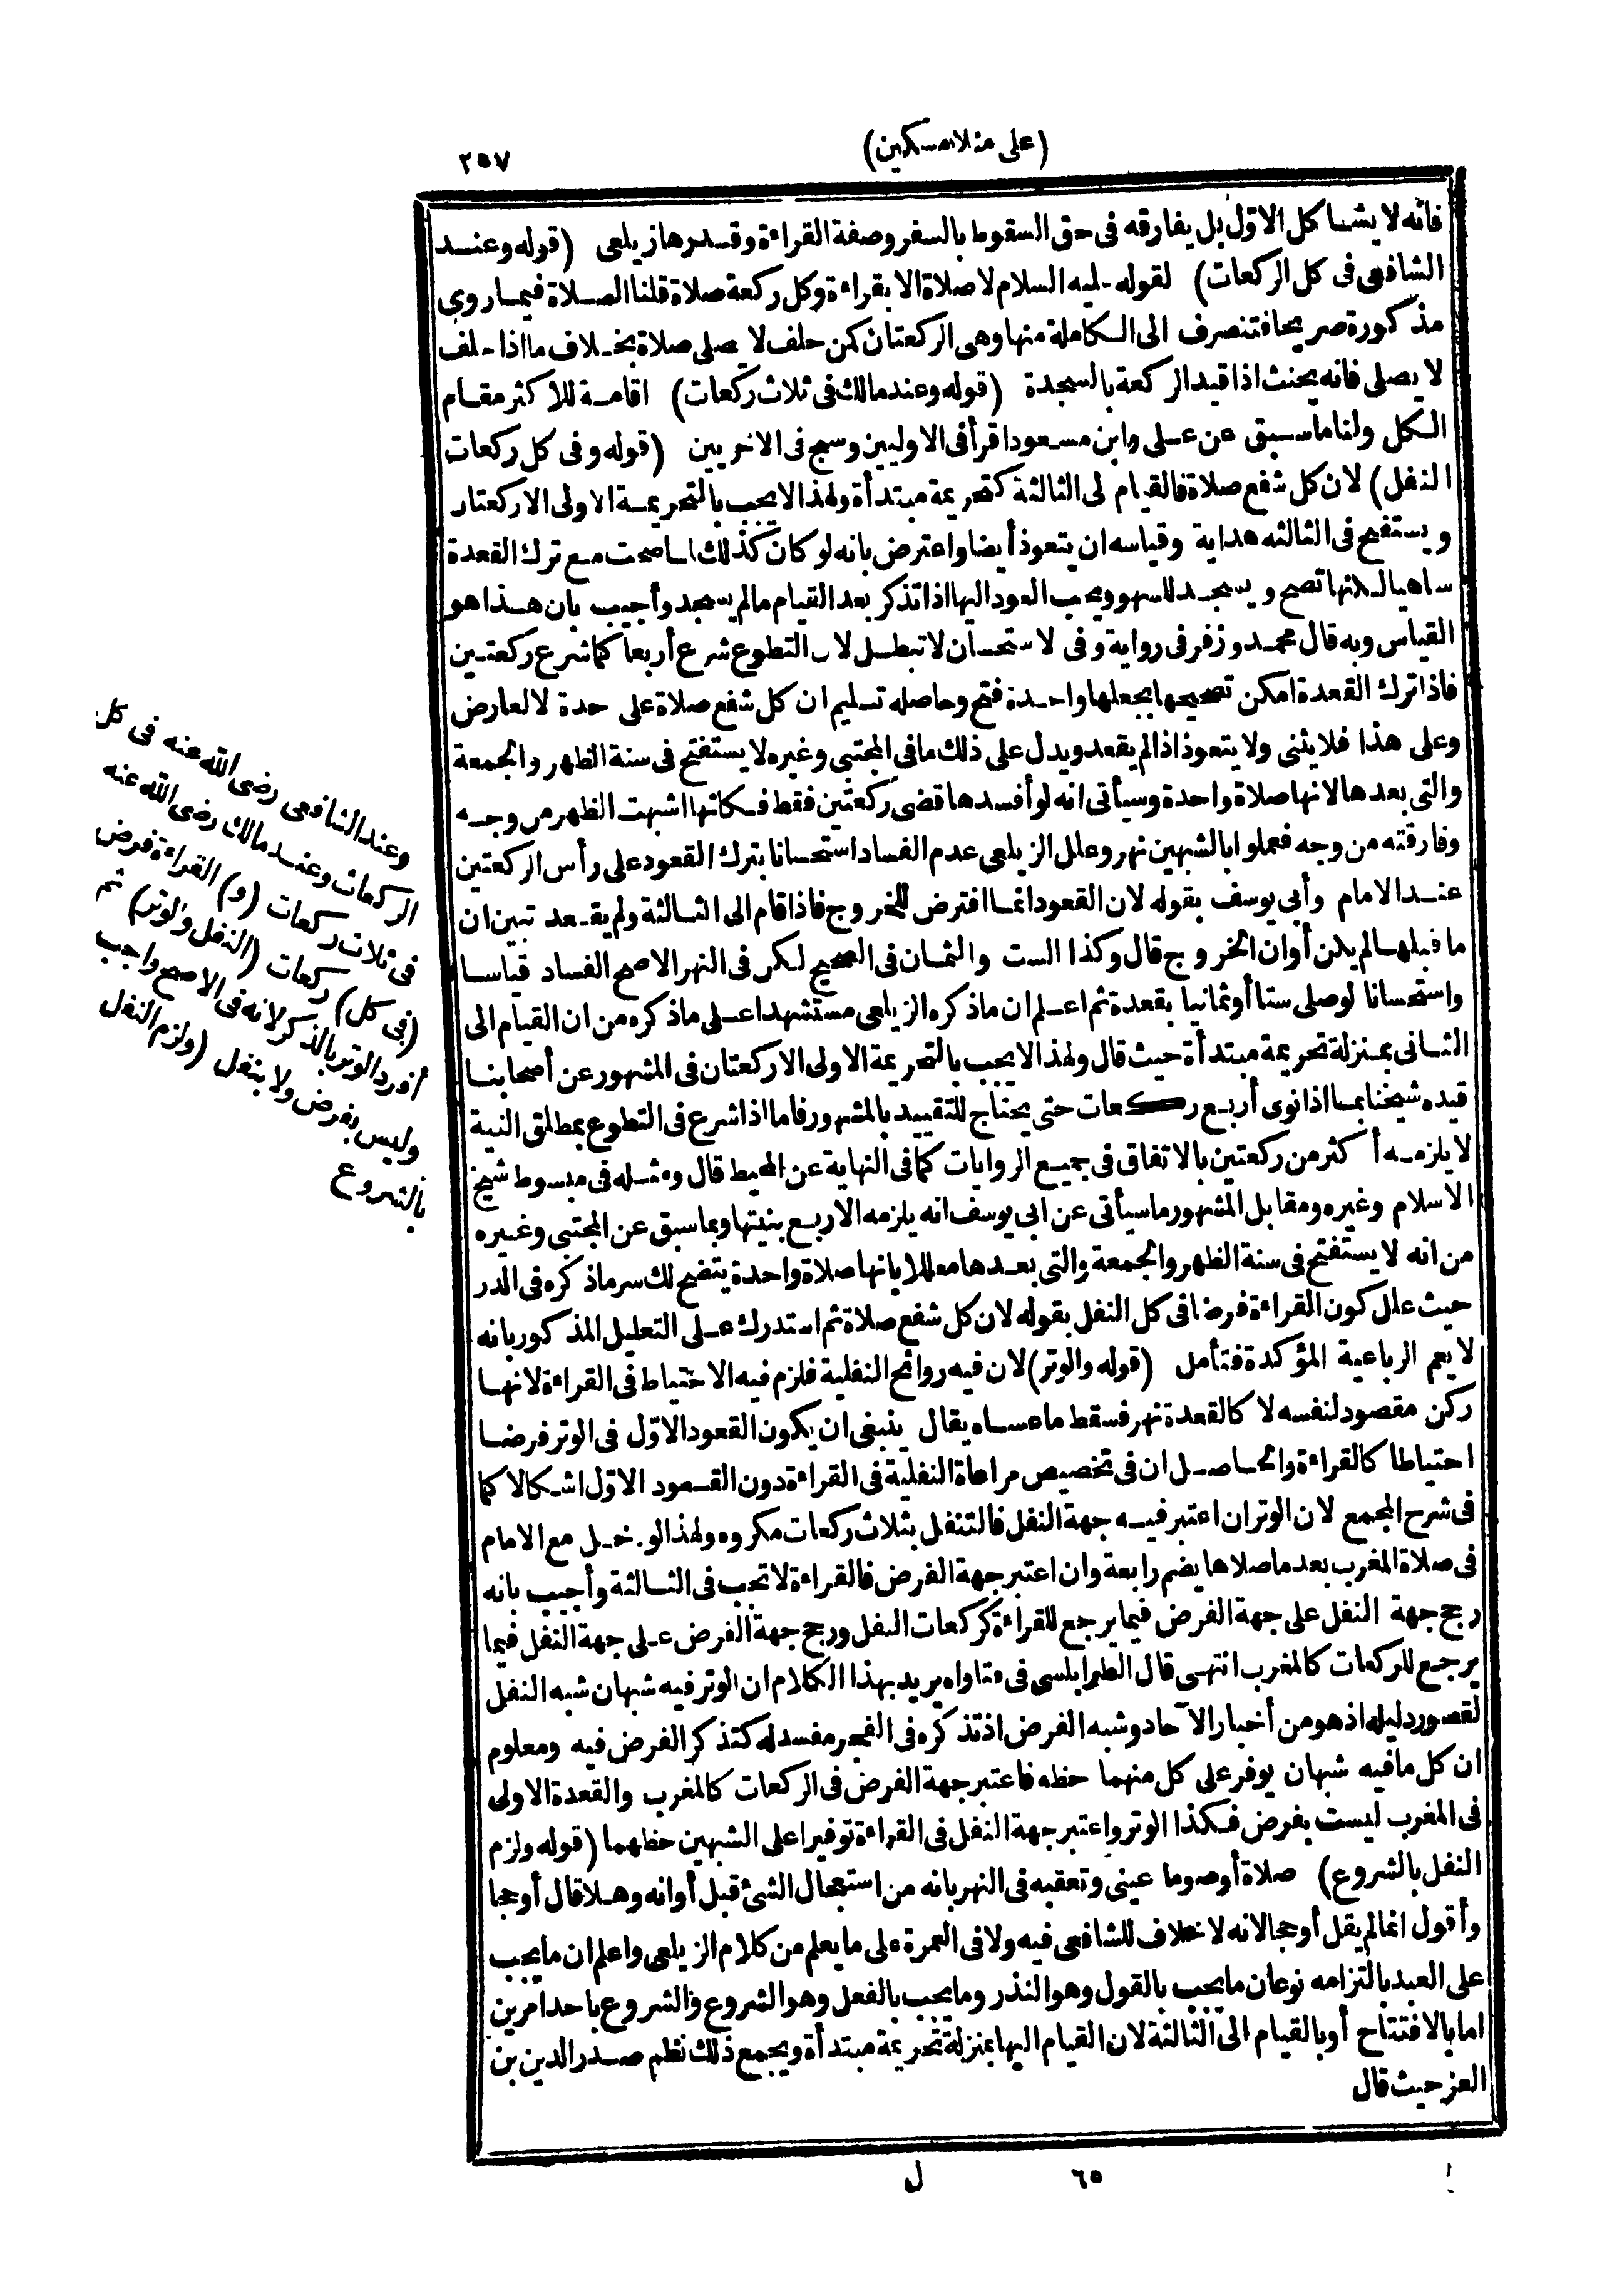 (على منلا مسكين)
٢٥٧
فانه لا يشا كل الاوّل بل يفارقه فى حق السقوط بالسفر وصفة القراءة وقدرها زيلعى (قوله وعند
الشافعى فى كل الركعات) لقوله عليه السلام لا صلاة الا بقراءة وكل ركعة صلاة قلنا الصلاة فيما روى
مذكورة صريحا فتنصرف الى الكاملة منها وهى الركعتان كمن حلف لا يصلى صلاة بخلاف ما اذا حلف
لا يصلى فانه يحنث اذا قيد الركعة بالسجدة (قوله وعند مالك فى ثلاث ركعات) اقامة للاكثر مقام
الكل ولنا ما سبق عن على وابن مسعود اقرأ فى الاوليين وسبح فى الاخريين (قوله وفى كل ركعات
النفل) لان كل شفع صلاة فالقيام الى الثالثة كتحريمة مبتدأة ولهذا لا يجب بالتحريمة الاولى الا ركعتان
ويستفتح فى الثالثة هداية وقياسه ان يتعوذ أيضا واعترض بانه لو كان كذلك لما صحت مع ترك القعدة
ساهيا لكنها تصح ويسجد للسهو ويجب العود اليها اذا تذكر بعد القيام ما لم يسجد وأجيب بان هذا هو
القياس وبه قال محمد وزفر فى رواية وفى الاستحسان لا تبطل لان التطوع شرع أربعا كما شرع ركعتين
فاذا ترك القعدة امكن تصحيحها بجعلها واحدة فتح وحاصله تسليم ان كل شفع صلاة على حدة لا لعارض
وعلى هذا فلا يثنى ولا يتعوذ اذا لم يقعد ويدل على ذلك ما فى المجتبى وغيره لا يستفتح فى سنة الظهر والجمعة
والتى بعدها لانها صلاة واحدة وسيأتى انه لو أفسدها قضى ركعتين فقط فكانها اشبهت الظهر من وجه
وفارقته من وجه فعملوا بالشبهين نهر وعلل الزيلعى عدم الفساد استحسانا بترك القعود على رأس الركعتين
عند الامام وأبى يوسف بقوله لان القعود انما افترض للخروج فاذا قام الى الثالثة ولم يقعد تبين ان
ما قبلها لم يكن أوان الخروج قال وكذا الست والثمان فى الصحيح لكن فى النهر الاصح الفساد قياسا
واستحسانا لو صلى ستا أو ثمانيا بقعدة ثم اعلم ان ما ذكره الزيلعى مستشهدا على ما ذكره من ان القيام الى
الثانى بمنزلة تحريمة مبتدأة حيث قال ولهذا لا يجب بالتحريمة الاولى الا ركعتان فى المشهور عن أصحابنا
قيده شيخنا بما اذا نوى أربع ركعات حتى يحتاج للتقييد بالمشهور فاما اذا شرع فى التطوع بمطلق النية
لا يلزمه أكثر من ركعتين بالاتفاق فى جميع الروايات كما فى النهاية عن المحيط قال ومثله فى مبسوط شيخ
الاسلام وغيره ومقابل المشهور ما سيأتى عن ابى يوسف انه يلزمه الاربع بنيتها وبما سبق عن المجتبى وغيره
من انه لا يستفتح فى سنة الظهر والجمعة والتى بعدها معللا بانها صلاة واحدة يتضح لك سر ما ذكره فى الدر
حيث علل كون القراءة فرضا فى كل النفل بقوله لان كل شفع صلاة ثم استدرك على التعليل المذكور بانه
لا يعم الرباعية المؤكدة فتأمل (قوله والوتر) لان فيه روائح النفلية فلزم فيه الاحتياط فى القراءة لانها
ركن مقصود لنفسه لا كالقعدة نهر فسقط ما عساه يقال ينبغى ان يكون القعود الاوّل فى الوتر فرضا
احتياطا كالقراءة والحاصل ان فى تخصيص مراعاة النفلية فى القراءة دون القعود الاوّل اشكالا كما
فى شرح المجمع لان الوتر ان اعتبر فيه جهة النفل فالتنفل بثلاث ركعات مكروه ولهذا لو دخل مع الامام
فى صلاة المغرب بعد ما صلاها يضم رابعة وان اعتبر جهة الفرض فالقراءة لا تجب فى الثالثة وأجيب بانه
رجح جهة النفل على جهة الفرض فيما يرجع للقراءة كركعات النفل ورجح جهة الفرض على جهة النفل فيما
يرجع للركعات كالمغرب انتهى قال الطرابلسى فى فتاواه يريد بهذا الكلام ان الوتر فيه شبهان شبه النفل
لقصور دليله اذ هو من أخبار الآحاد وشبه الفرض اذ تذكره فى الفجر مفسد له كتذكر الفرض فيه ومعلوم
ان كل ما فيه شبهان يوفر على كل منهما حظه فاعتبر جهة الفرض فى الركعات كالمغرب والقعدة الاولى
فى المغرب ليست بفرض فكذا الوتر واعتبر جهة النفل فى القراءة توفيرا على الشبهين حظهما (قوله ولزم
النفل بالشروع) صلاة أو صوما عينى وتعقبه فى النهر بانه من استعجال الشئ قبل أوانه وهلا قال أو حجا
وأقول انما لم يقل أو حجا لانه لا خلاف للشافعى فيه ولا فى العمرة على ما يعلم من كلام الزيلعى واعلم ان ما يجب
على العبد بالتزامه نوعان ما يجب بالقول وهو النذر وما يجب بالفعل وهو الشروع والشروع باحد امرين
اما بالافتتاح أو بالقيام الى الثالثة لان القيام اليها بمنزلة تحريمة مبتدأة ويجمع ذلك نظم صدر الدين بن
العز حيث قال
وعند الشافعى رضى الله عنه فى كل
الركعات وعند مالك رضى الله عنه
فى ثلاث ركعات (و) القراءة فرض
(فى كل) ركعات (النفل والوتر) ثم
أفرد الوتر بالذكر لانه فى الاصح واجب
وليس بفرض ولا بنفل (ولزم النفل
بالشروع
٦٥
ل